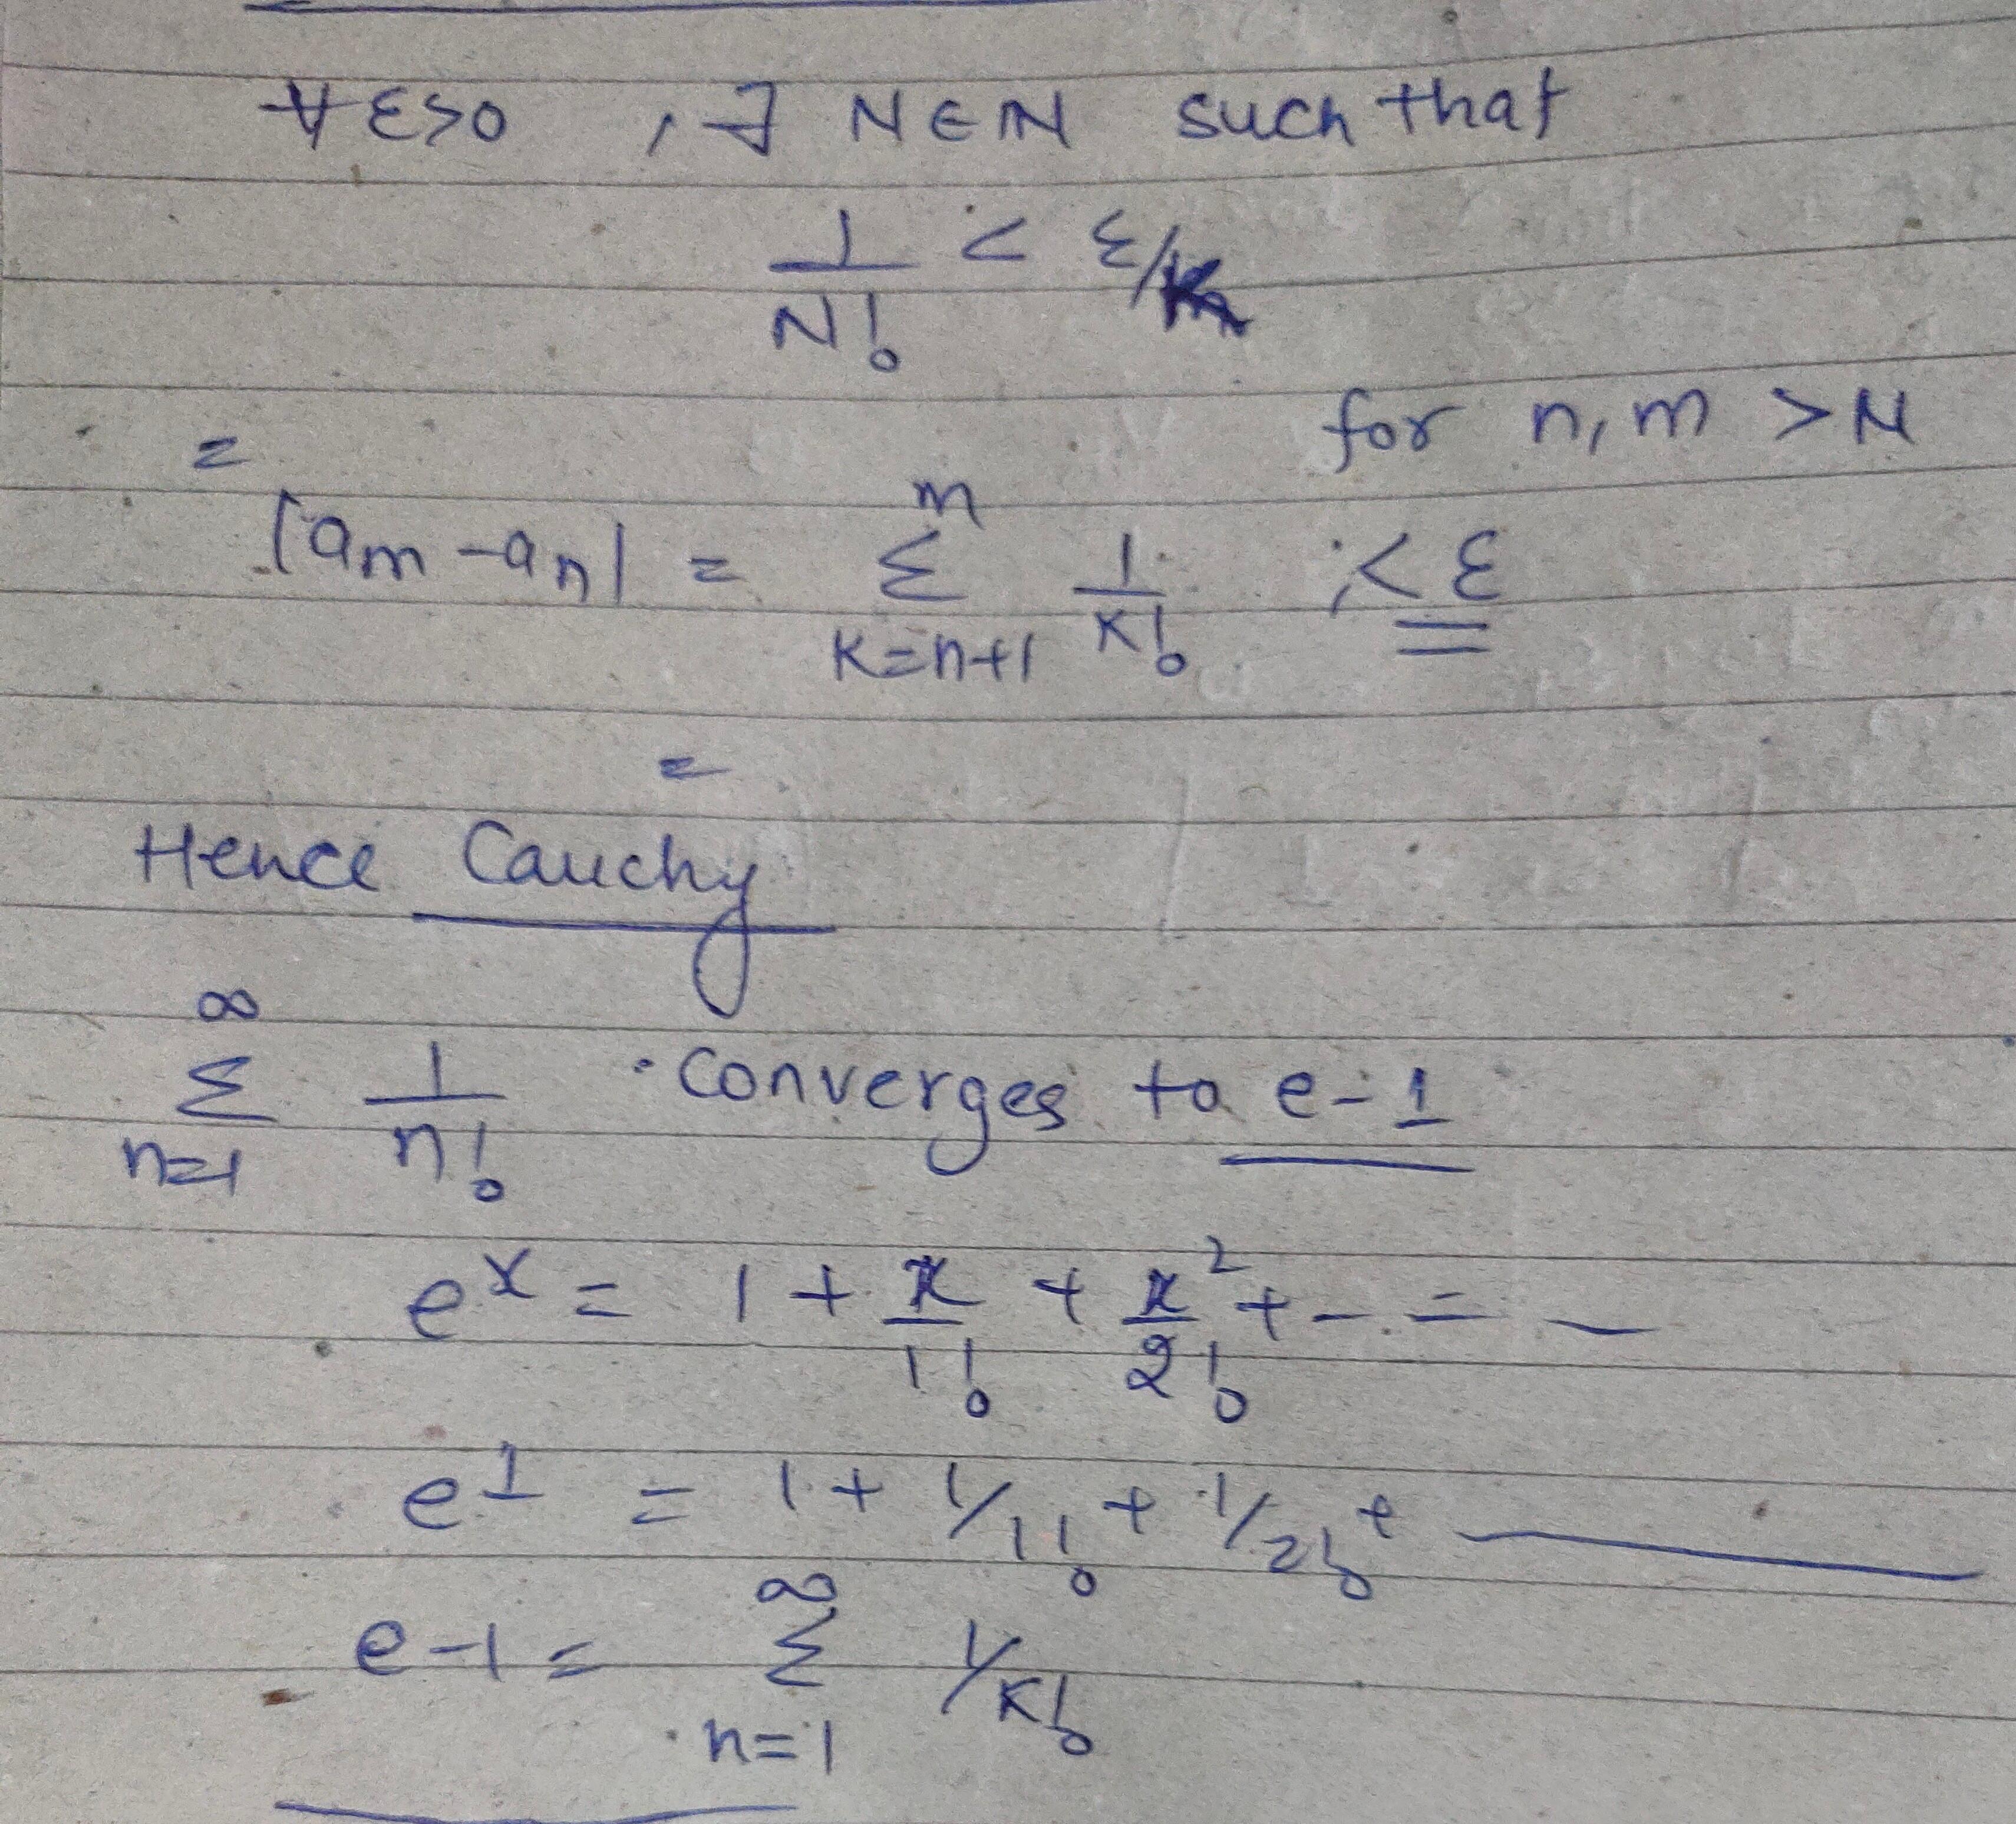 ∀ ε>0 , ∃ N ∈ ℕ such that
1/N! < ε/
for n, m > N
=
|am - an| = m Σ k=n+1 1/k! < ε
=
Hence Cauchy
∞ Σ n=1 1/n! converges to e-1
e^x = 1 + x/1! + x^2/2! + - . = -
e^1 = 1 + 1/1! + 1/2! + ———
e-1 = ∞ Σ n=1 1/k!